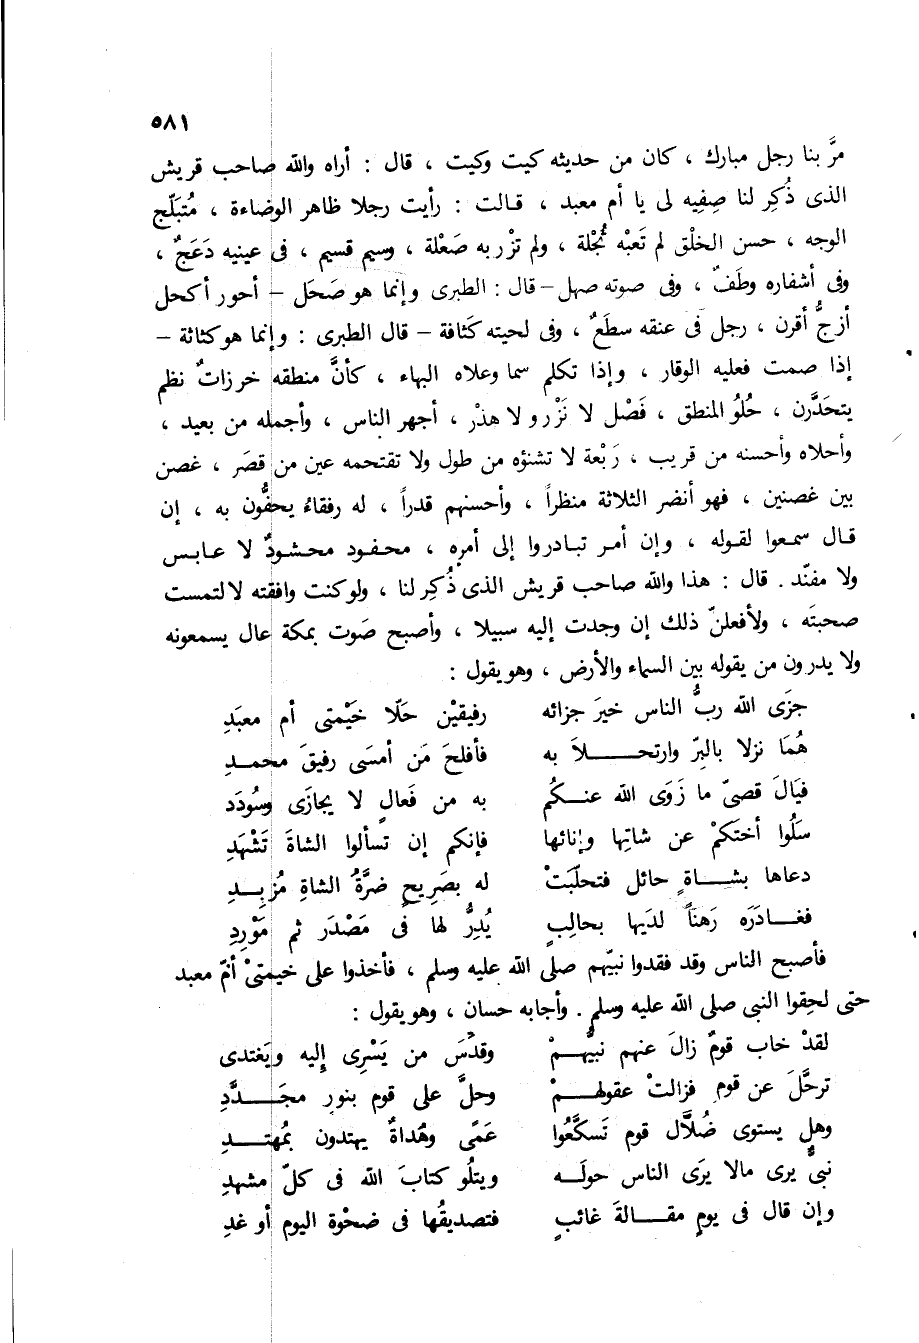 ٥٨١
مرَّ بنا رجل مبارك ، كان من حديثه كيت وكيت ، قال : أراه والله صاحب قريش
الذى ذُكِر لنا صِفِيه لى يا أم معبد ، قالت : رأيت رجلا ظاهر الوضاءة ، مُتَبَلّج
الوجه ، حسن الخلْق لم تَعبْه ثُجْلة ، ولم تزْر به صَعْلة ، وسيم قسيم ، فى عينيه دَعَجٌ ،
وفى أشفاره وطَفٌ ، وفى صوته صهل – قال : الطبرى وإنما هو صَحَل – أحور أكحل
أزجُّ أقرن ، رجل فى عنقه سطَعٌ ، وفى لحيته كَثافة – قال الطبرى : وإنما هو كثاثة –
إذا صمت فعليه الوقار ، وإذا تكلم سما وعلاه البهاء ، كأنَّ منطقه خرزاتٌ نظم
يتحَدَّرن ، حُلوُ المنطق ، فَصْل لا نَزْر ولا هذْر ، أجهر الناس ، وأجمله من بعيد ،
وأحلاه وأحسنه من قريب ، رَبْعة لا تشنؤه من طول ولا تقتحمه عين من قصَر ، غصن
بين غصنين ، فهو أنضر الثلاثة منظراً ، وأحسنهم قدراً ، له رفقاءُ يحفُّون به ، إن
قال سمعوا لقوله ، وإن أمر تبادروا إلى أمرِه ، محفود محشودٌ لا عابس
ولا مفنّد . قال : هذا والله صاحب قريش الذى ذُكِر لنا ، ولو كنت وافقته لالتمست
صحبتَه ، ولأفعلنّ ذلك إن وجدت إليه سبيلا ، وأصبح صَوت بمكة عال يسمعونه
ولا يدرون من يقوله بين السماء والأرض ، وهو يقول :
جزَى الله ربُّ الناس خيرَ جزائه رفيقيْن حَلّا خَيْمتى أم معبَدِ
هُمَا نزلا بالبِرّ وارتحــلاَ به فأفلحَ مَن أمسَى رفيقَ محمــدِ
فيَالَ قصىّ ما زَوَى الله عنــكُم به من فَعالٍ لا يجازَى وسُودَد
سَلُوا أختَكمْ عن شاتِها وإنائها فإنكم إن تسألوا الشاةَ تَشْهَدِ
دعاها بشــاةٍ حائل فتحلّبَتْ له بصَرِيحٍ ضرَّةُ الشاةِ مُزبِــدِ
فغــادَرَه رَهناً لدَيها بحالِبٍ يُدِرُّ لها فى مَصْدَر ثم مَوْرِدِ
فأصبح الناس وقد فقدوا نبيّهم صلى الله عليه وسلم ، فأخذوا على خيمتىْ أمّ معبد
حتى لحِقوا النبى صلى الله عليه وسلم . وأجابه حسان ، وهو يقول :
لقدْ خاب قومٌ زالَ عنهم نبيُّهــمْ وقدّسَ من يَسْرِى إليه ويَغتدى
ترحَّلَ عن قوم فزالتْ عقولهــمْ وحلَّ على قوم بنورٍ مجَــدَّدِ
وهل يستوى ضُلاَّل قوم تَسكَّعُوا عَمًى وهُداةٌ يهتدون بمُهتــدِ
نبىٌّ يرى مالا يرَى الناس حولَــه ويتلُو كتابَ الله فى كلّ مشهدِ
وإن قال فى يومٍ مقــالةَ غائبٍ فتصديقُها فى ضحْوة اليوم أو غدِ